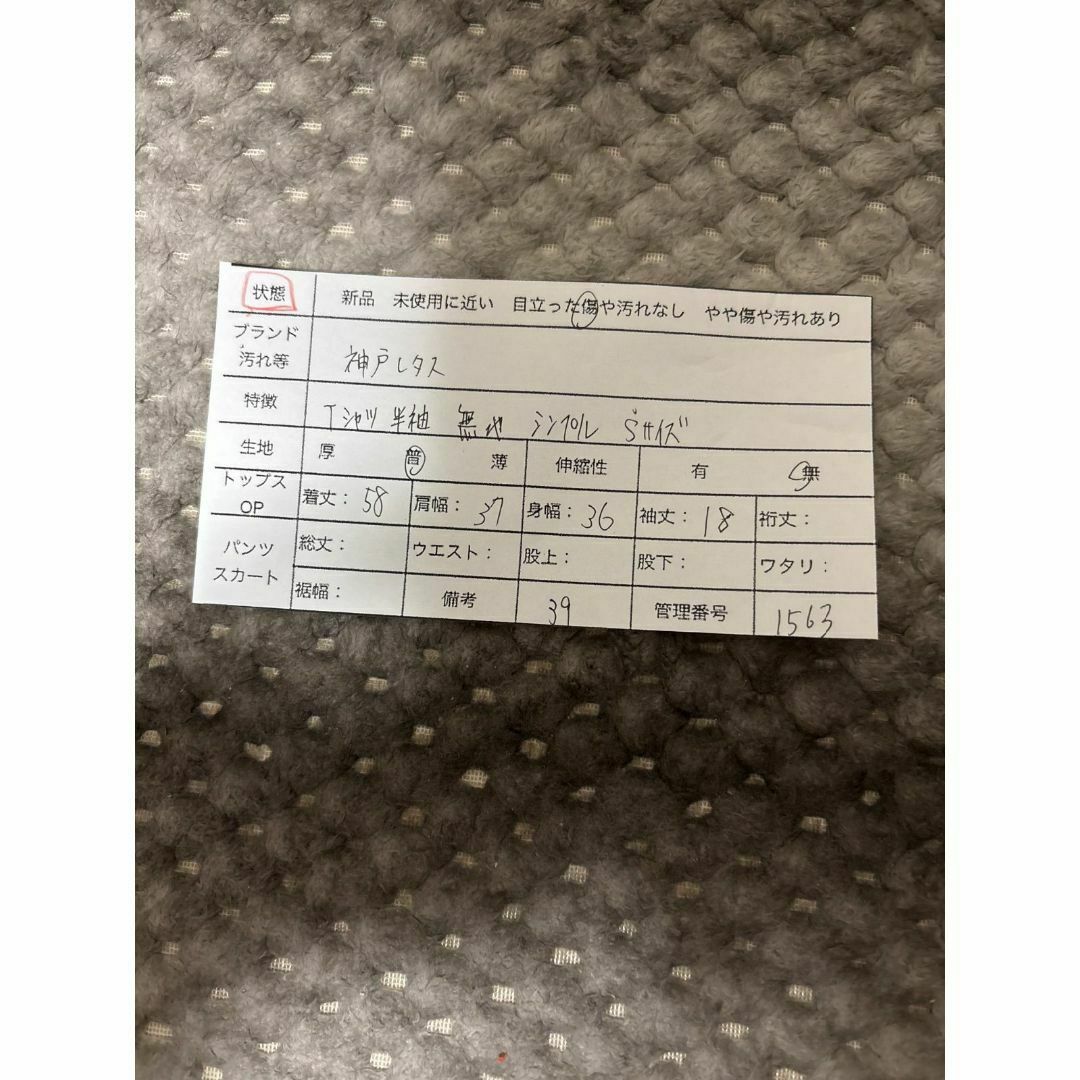 状態 新品 未使用に近い 目立った傷や汚れなし やや傷や汚れあり
ブランド
汚れ等 神戸レタス
特徴 Tシャツ 半袖 無地 シンプル Sサイズ
生地 厚 普 薄 伸縮性 有 無
トップス
OP 着丈：58 肩幅：37 身幅：36 袖丈：18 裄丈：
パンツ
スカート 総丈： ウエスト： 股上： 股下： ワタリ：
裾幅： 備考 39 管理番号 1563